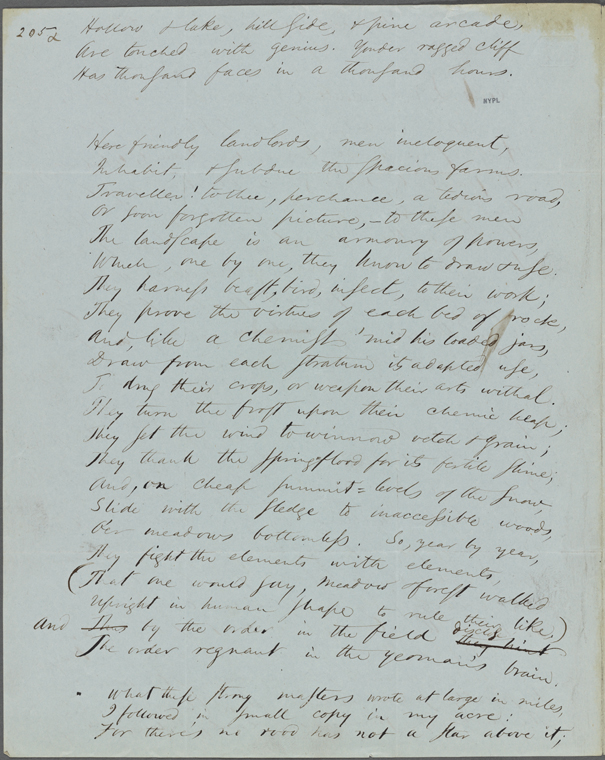 205 2
Hollow & lake, hill side, & pine arcade,
Are touched with genius. Yonder ragged cliff
Has thousand faces in a thousand hours.
NYPL
Here friendly landlords, men ineloquent,
Inhabit, & subdue the spacious farms.
Traveller! to thee, perchance, a tedious road,
Or soon forgotten picture, – to these men
The landscape is an armoury of powers,
Which, one by one, they know to draw & use.
They harness beast, bird, insect, to their work;
They prove the virtues of each bed of rock,
And, like a chemist 'mid his loaded jars,
Draw from each stratum its adapted use,
To drug their crops, or weapon their arts withal.
They turn the frost upon their chemic heap;
They set the wind to winnow vetch & grain;
They thank the spring-flood for its fertile slime;
And, on cheap summit-levels of the snow,
Slide with the sledge to inaccessible woods,
O'er meadows bottomless. So, year by year,
They fight the elements with elements,
(That one would say, meadow & forest walked
Upright in human shape to rule their like,)
And Thus by the order in the field disclose they hint
The order regnant in the yeoman's brain.
What these strong masters wrote at large in miles,
I followed in small copy in my acre:
For there's no rood has not a star above it;